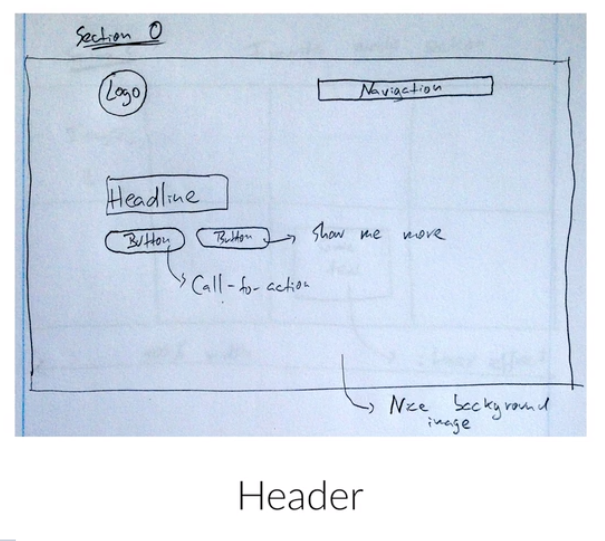 Section 0
Logo
Navigation
Headline
Button
Button
Show me more
Call-to-action
Nice background
image
Header